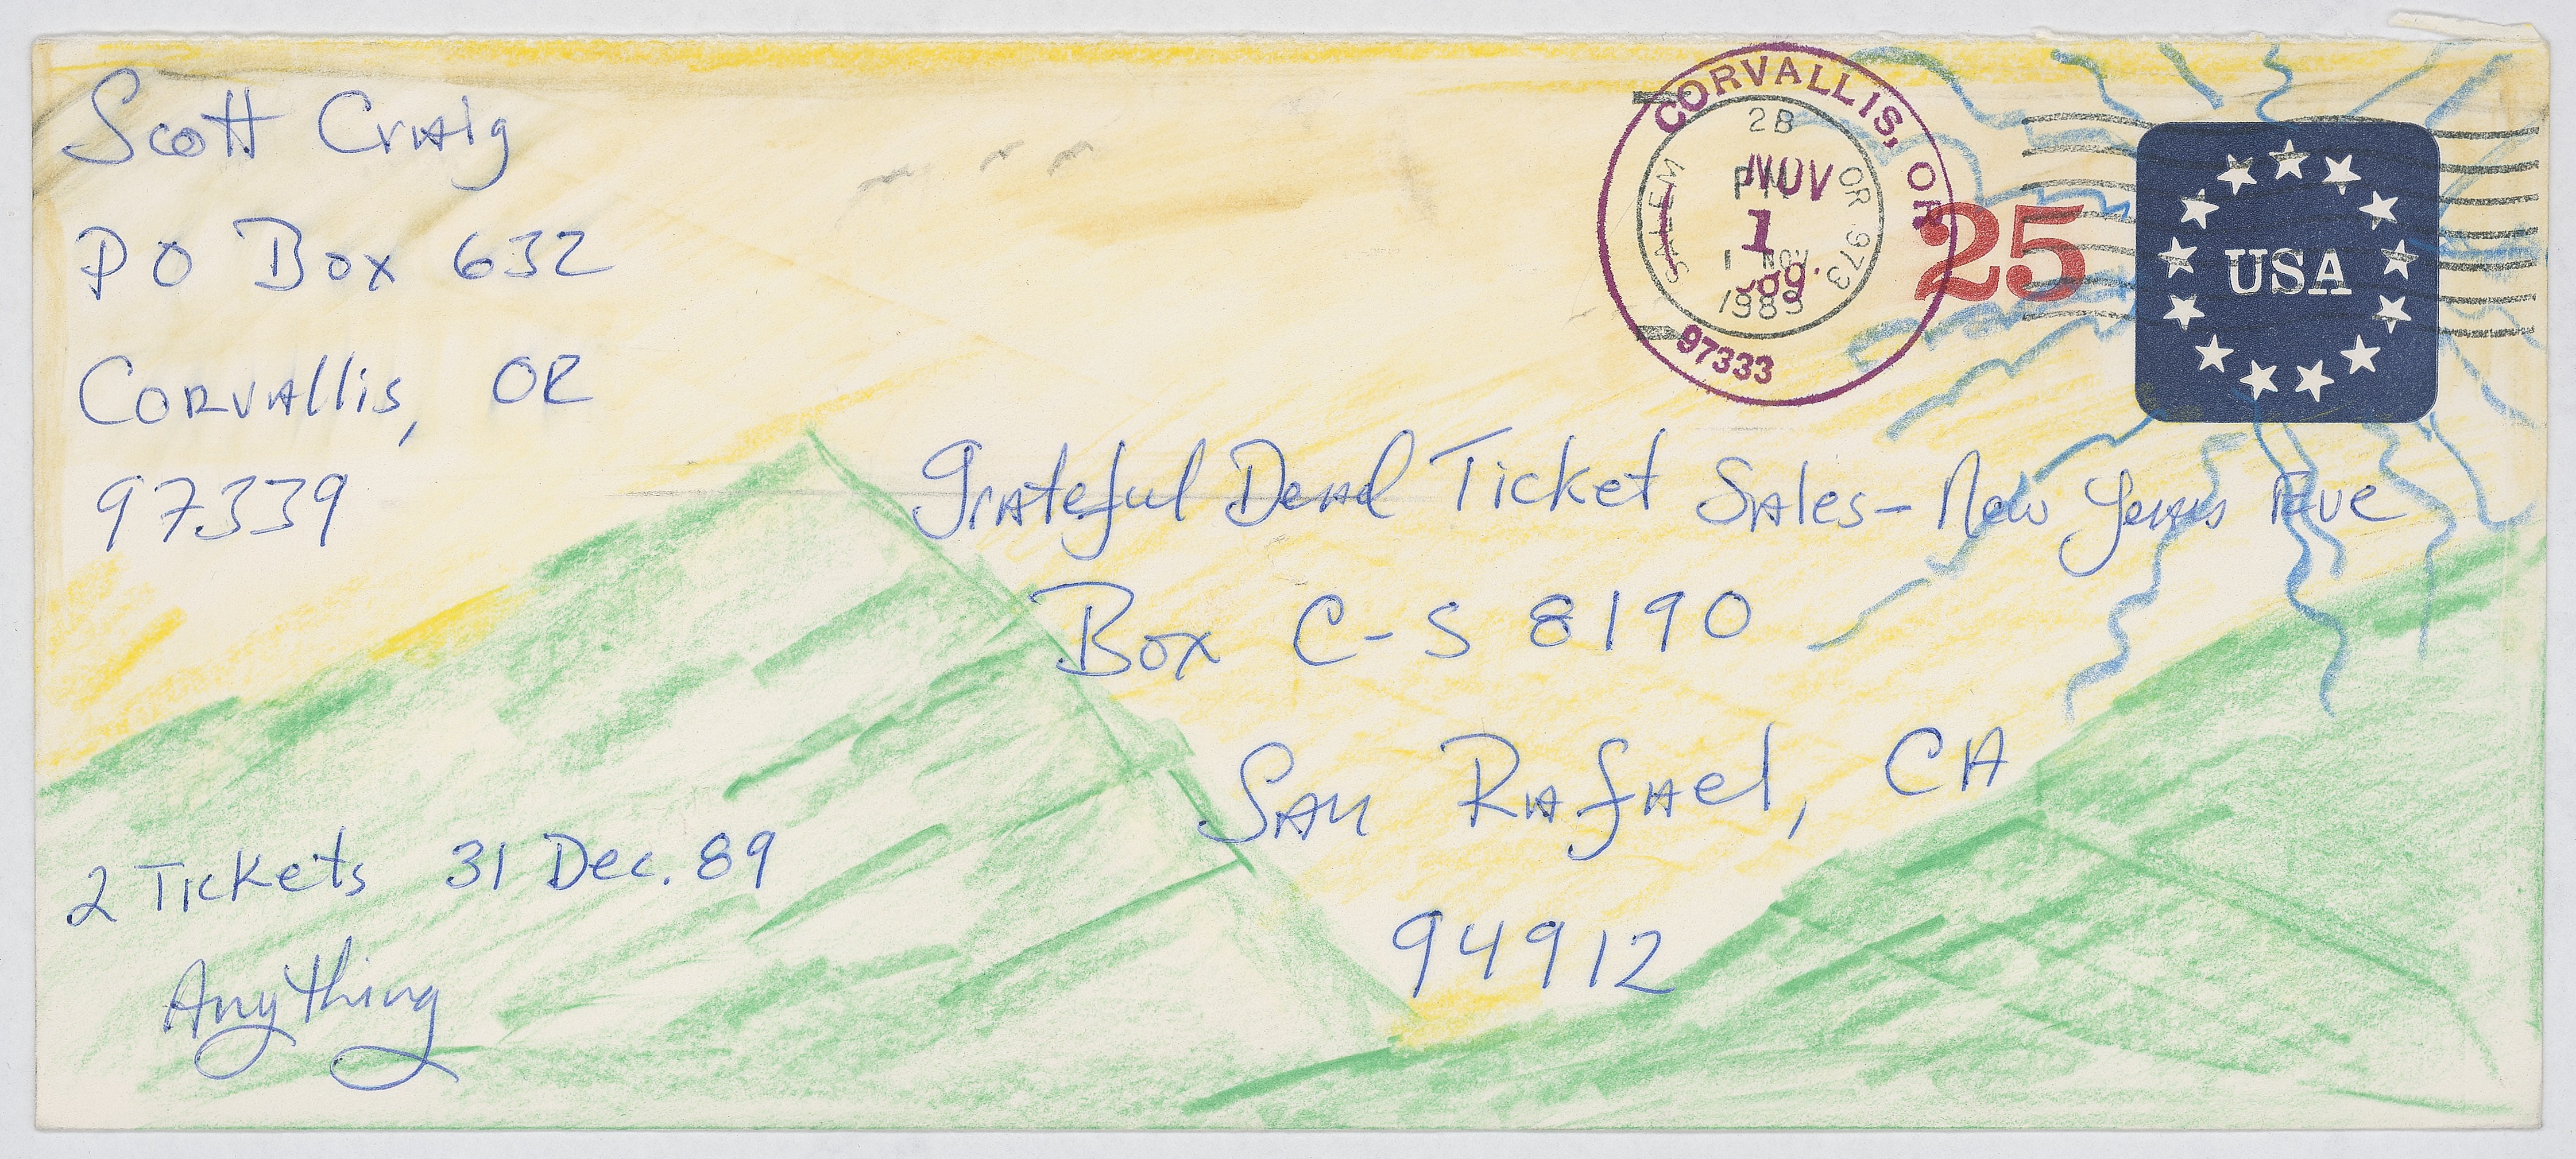 Scott Craig
PO Box 632
Corvallis, OR
97339
CORVALLIS, OR
97333
NOV
1
SALEM OR 973
2B
PM
1 NOV
1989
25
USA
Grateful Dead Ticket Sales - New Years Eve
Box C-S 8190
San Rafael, CA
94912
2 Tickets 31 Dec. 89
Anything